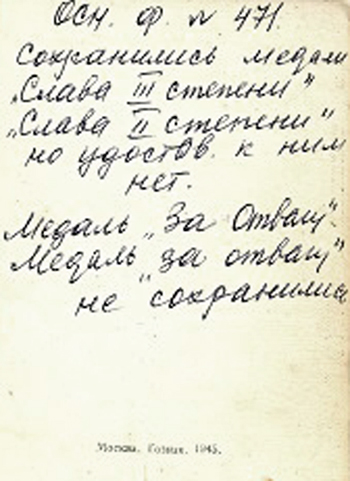 Осн. ф. № 471.
Сохранились медали
„Слава III степени"
„Слава II степени"
но удостов. к ним
нет.
Медаль „За Отвагу".
Медаль „за отвагу"
не сохранились
Москва. Гознак. 1945.